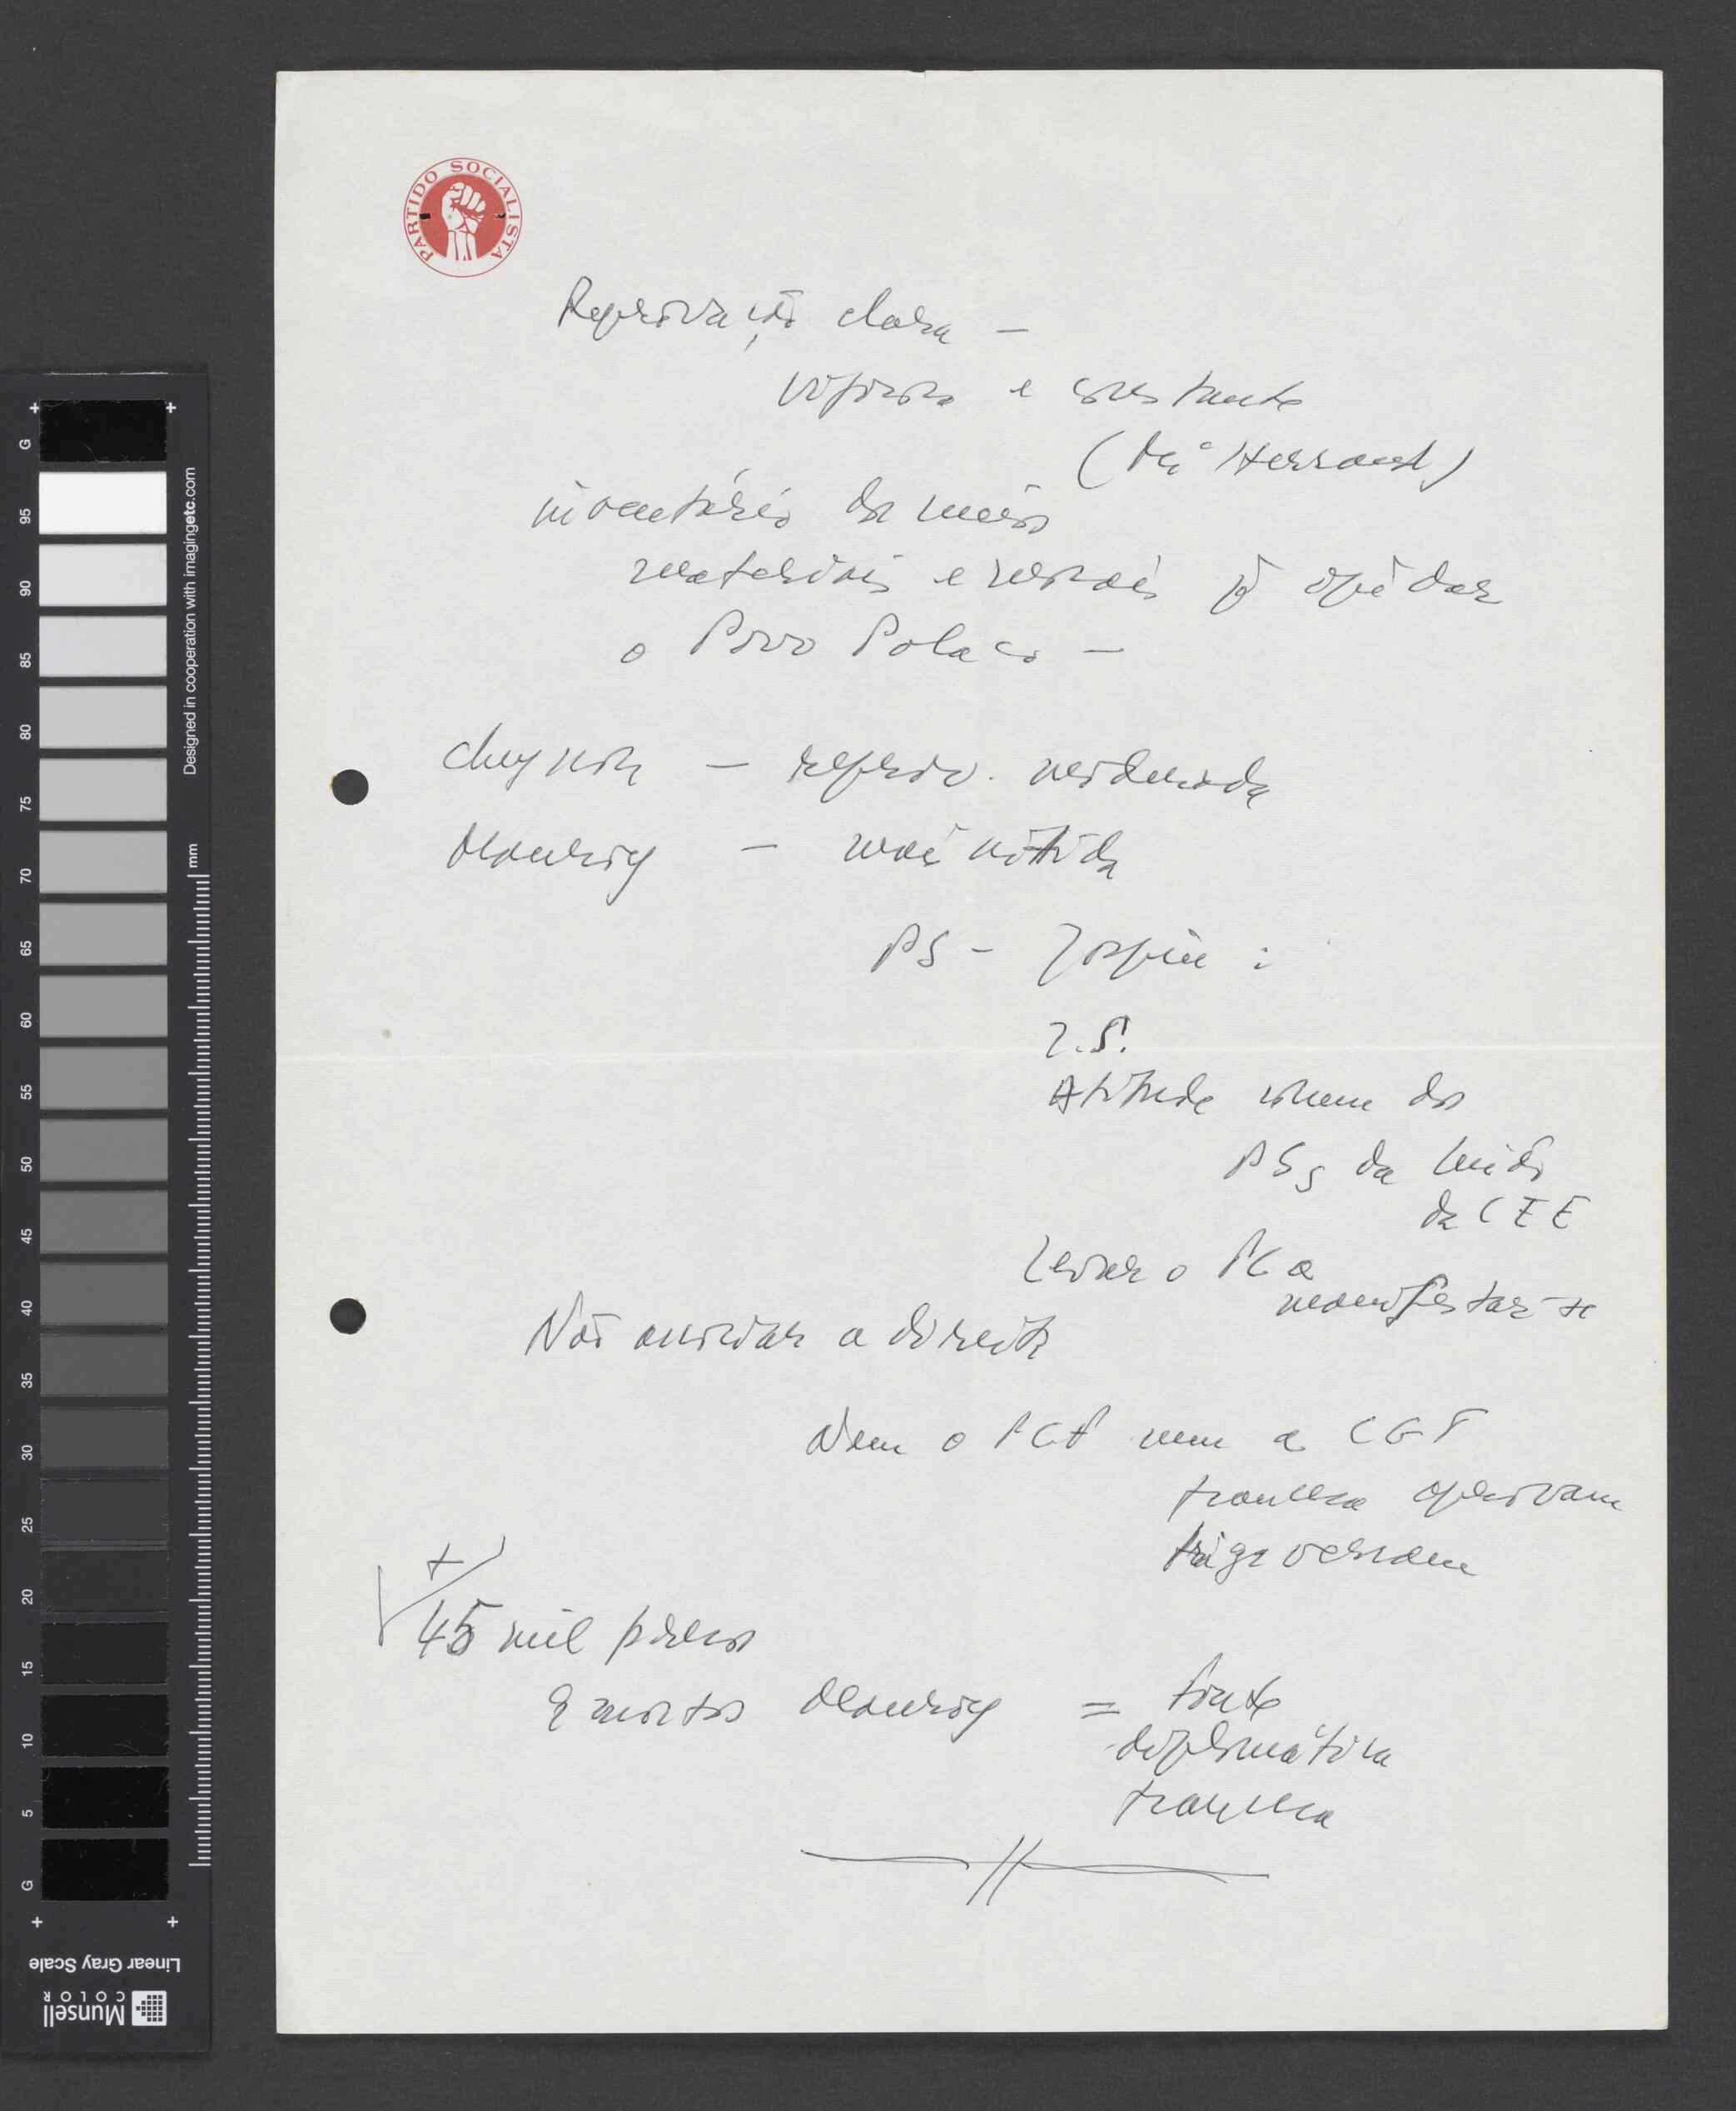 PARTIDO SOCIALISTA
Reprovação clara –
vigorosa e constante
inventário de meios
materiais e morais p. ajudar
o Povo Polaco –
Cheysson – reprov. moderada
Mauroy – mais nítida
PS – Jospin :
I.S.
Atitude comum dos
PSs da
da CEE
Levar o PC a
manifestar-se
Não a direita
Nem o PCF nem a CGT
francesa aprovam
tergiversam
+
45 mil presos
9 mortos Mauroy = fonte
diplomática
francesa
Designed in cooperation with imagingetc.com
mm
G
95
90
85
80
75
70
65
60
55
50
45
40
35
30
25
20
15
10
5
G
Linear Gray Scale
Munsell
COLOR